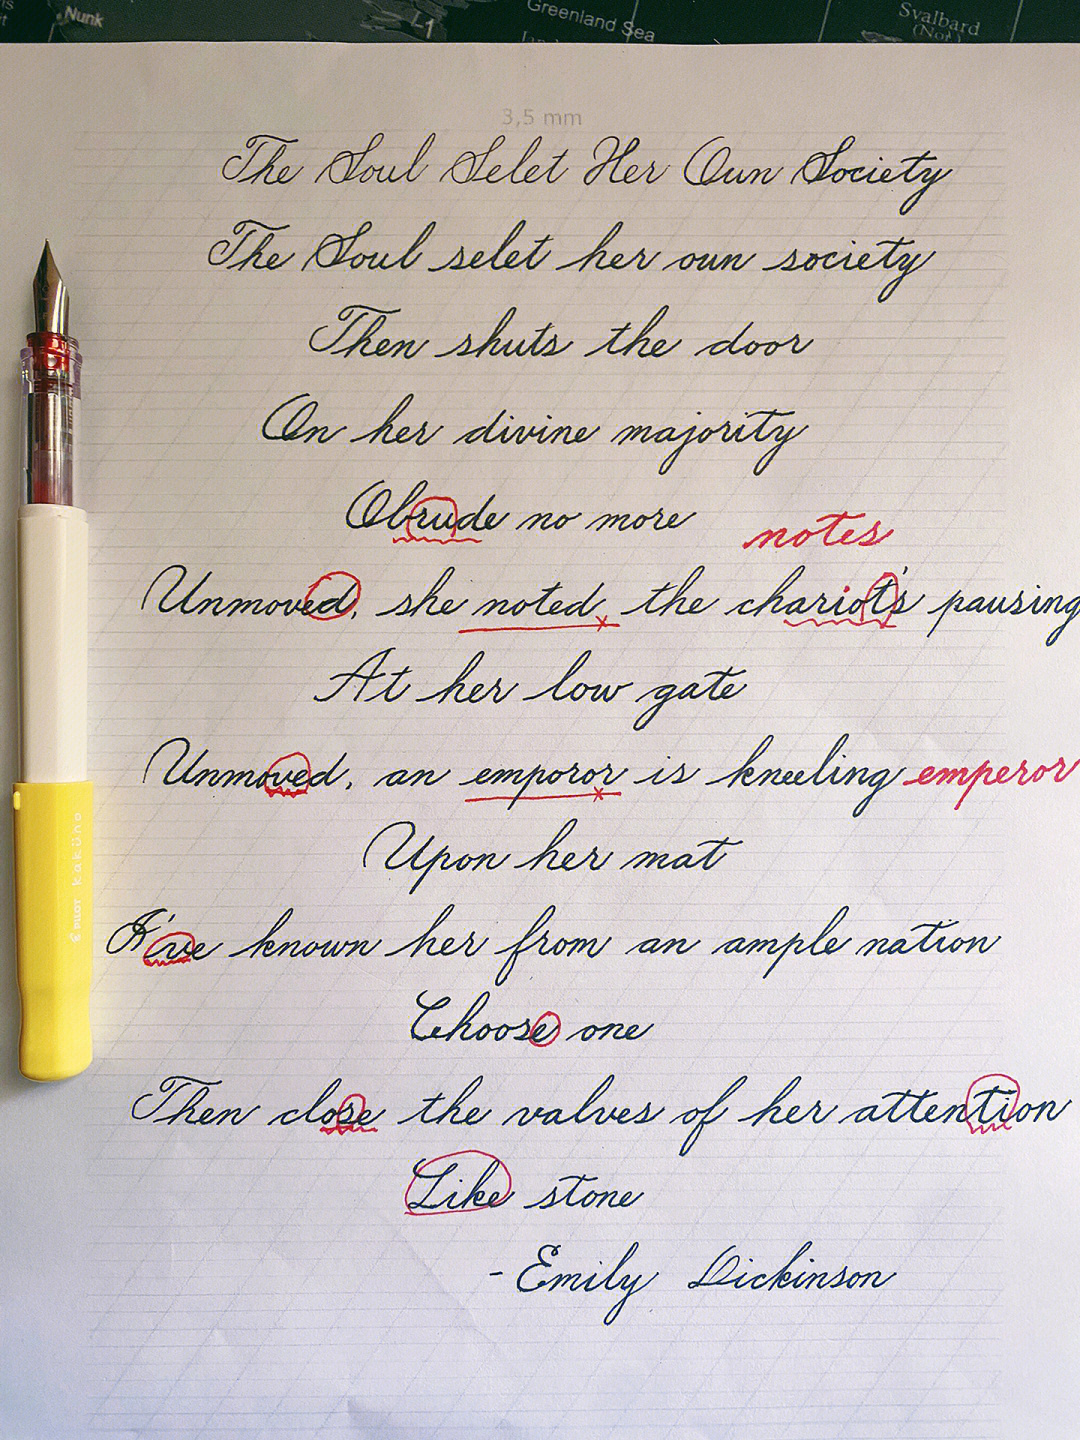 Nunk
L1
Greenland Sea
Svalbard
(Nor.)
3,5 mm
The Soul Selet Her Own Society
The Soul selet her own society
Then shuts the door
On her divine majority
Obrude no more
notes
Unmoved, she noted, the chariot's pausing
At her low gate
Unmoved, an emporor is kneeling emperor
Upon her mat
I've known her from an ample nation
Choose one
Then close the valves of her attention
Like stone
- Emily Dickinson
PILOT kaküno